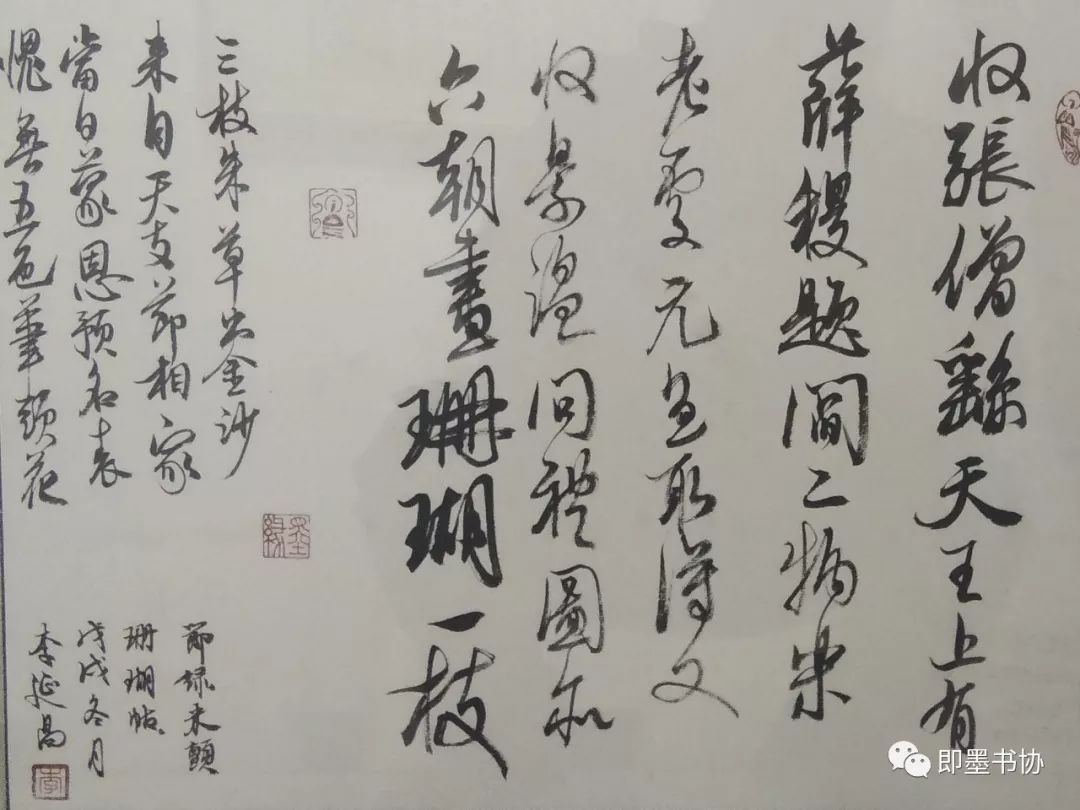 收張僧繇天王上有
薛稷題閻二物樂
老處元直取得又
收景温問禮圖亦
六朝畫珊瑚一枝
三枝朱草出金沙
来自天支節相家
當日蒙恩預名表
愧無五色筆頭花
節録米顛
珊瑚帖
戊戌冬月
李延昌
墨緣
李
即墨书协